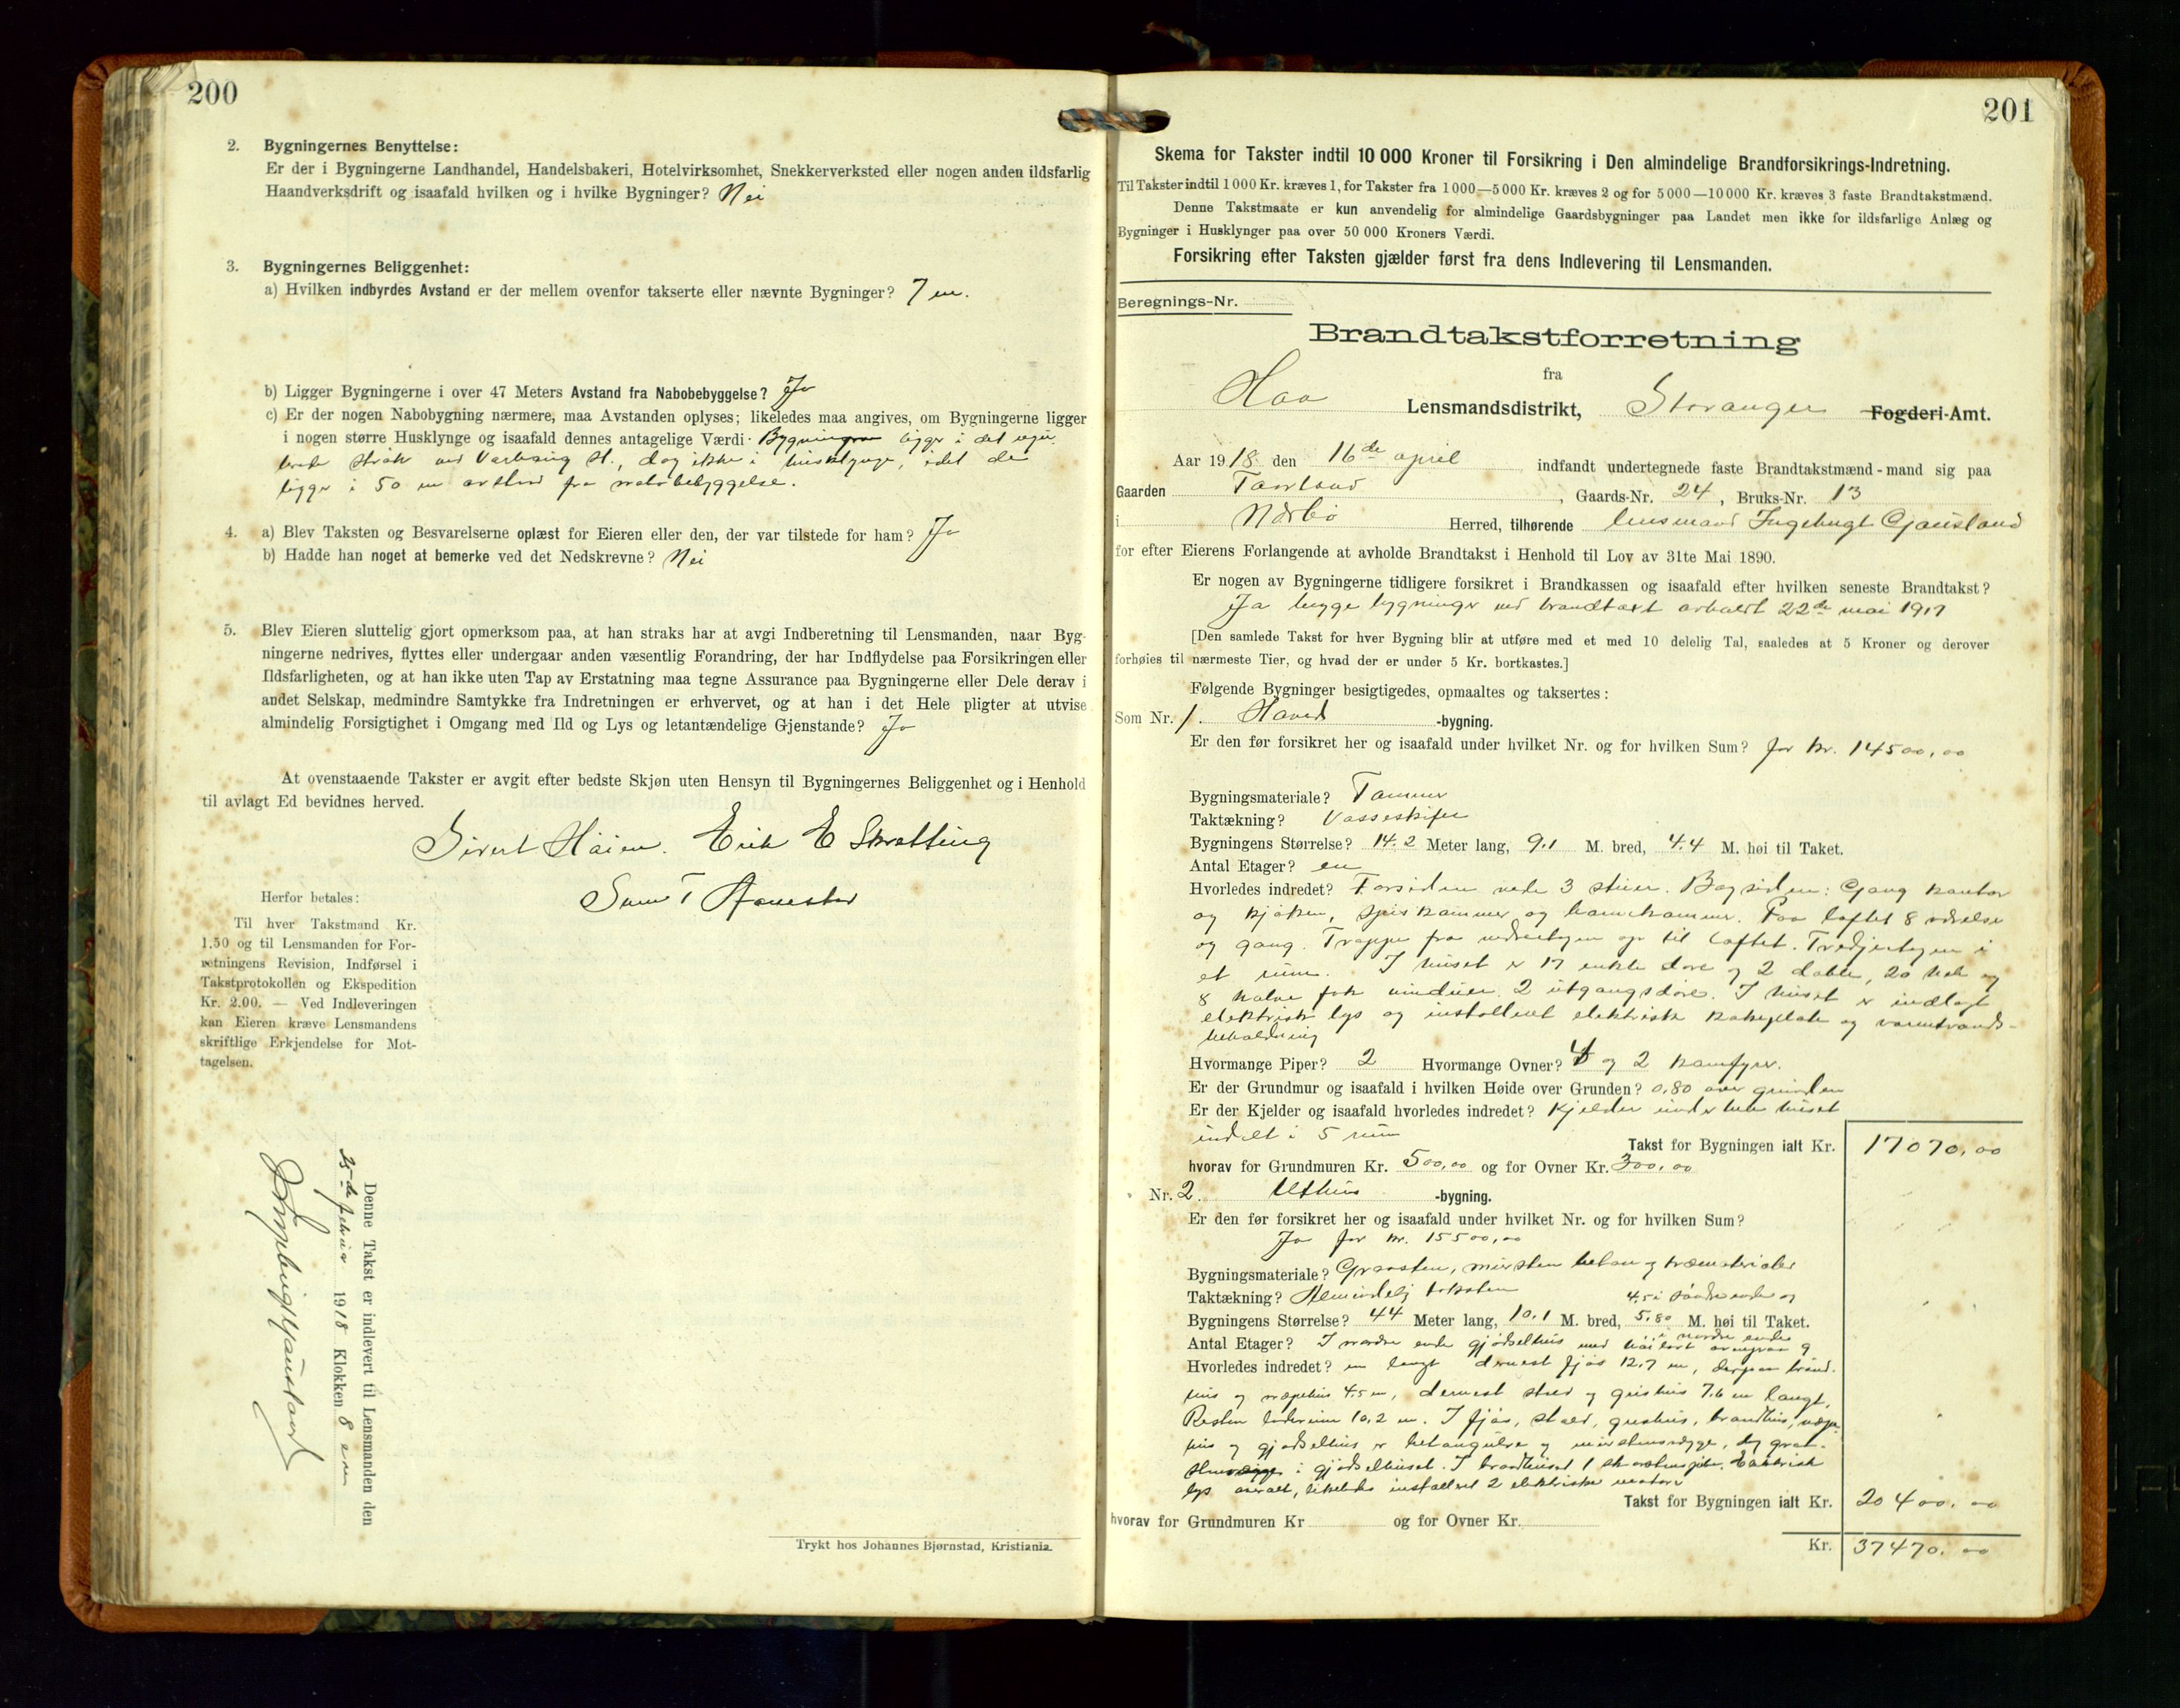 200
2. Bygningernes Benyttelse:
Er der i Bygningerne Landhandel, Handelsbakeri, Hotelvirksomhet, Snekkerverksted eller nogen anden ildsfarlig
Haandverksdrift og isaafald hvilken og i hvilke Bygninger? Nei
3. Bygningernes Beliggenhet:
a) Hvilken indbyrdes Avstand er der mellem ovenfor takserte eller nævnte Bygninger? 7 m.
b) Ligger Bygningerne i over 47 Meters Avstand fra Nabobebyggelse? Ja
c) Er der nogen Nabobygning nærmere, maa Avstanden oplyses; likeledes maa angives, om Bygningerne ligger
i nogen større Husklynge og isaafald dennes antagelige Værdi. Bygningerne ligger i det regu-
lerede strøk ved Varhaug st., dog ikke i husklynge, idet de
ligger i 50 m avstand fra nabobebyggelse.
4. a) Blev Taksten og Besvarelserne oplæst for Eieren eller den, der var tilstede for ham? Ja
b) Hadde han noget at bemerke ved det Nedskrevne? Nei
5. Blev Eieren sluttelig gjort opmerksom paa, at han straks har at avgi Indberetning til Lensmanden, naar Byg-
ningerne nedrives, flyttes eller undergaar anden væsentlig Forandring, der har Indflydelse paa Forsikringen eller
Ildsfarligheten, og at han ikke uten Tap av Erstatning maa tegne Assurance paa Bygningerne eller Dele derav i
andet Selskap, medmindre Samtykke fra Indretningen er erhvervet, og at han i det Hele pligter at utvise
almindelig Forsigtighet i Omgang med Ild og Lys og letantændelige Gjenstande? Ja
At ovenstaaende Takster er avgit efter bedste Skjøn uten Hensyn til Bygningernes Beliggenhet og i Henhold
til avlagt Ed bevidnes herved.
Sivert Håien. Erik E Skrætting
T
Herfor betales:
Til hver Takstmand Kr.
1,50 og til Lensmanden for For-
retningens Revision, Indførsel i
Takstprotokollen og Ekspedition
Kr. 2.00. — Ved Indleveringen
kan Eieren kræve Lensmandens
skriftlige Erkjendelse for Mot-
tagelsen.
Denne Takst er indlevert til Lensmanden den
25-de 1918 Klokken 8 em
Trykt hos Johannes Bjørnstad, Kristiania.
201
Skema for Takster indtil 10 000 Kroner til Forsikring i Den almindelige Brandforsikrings-Indretning.
Til Takster indtil 1000 Kr. kræves 1, for Takster fra 1000—5000 Kr. kræves 2 og for 5000—10000 Kr. kræves 3 faste Brandtakstmænd.
Denne Takstmaate er kun anvendelig for almindelige Gaardsbygninger paa Landet men ikke for ildsfarlige Anlæg og
Bygninger i Husklynger paa over 50 000 Kroners Værdi.
Forsikring efter Taksten gjælder først fra dens Indlevering til Lensmanden.
Beregnings-Nr.
Brandtakstforretning
fra
Haa Lensmandsdistrikt, Stavanger Fogderi-Amt.
Aar 1918 den 16de april indfandt undertegnede faste Brandtakstmænd - mand sig paa
Gaarden , Gaards-Nr. 24, Bruks-Nr. 13
i Nærbø Herred, tilhørende lensmand Ingebrigt Gausland
for efter Eierens Forlangende at avholde Brandtakst i Henhold til Lov av 31te Mai 1890.
Er nogen av Bygningerne tidligere forsikret i Brandkassen og isaafald efter hvilken seneste Brandtakst?
Ja begge bygninger ved brandtakst avholdt 22de mai 1917
[Den samlede Takst for hver Bygning blir at utføre med et med 10 delelig Tal, saaledes at 5 Kroner og derover
forhøies til nærmeste Tier, og hvad der er under 5 Kr. bortkastes.]
Følgende Bygninger besigtigedes, opmaaltes og taksertes:
Som Nr. 1. Hoved -bygning.
Er den før forsikret her og isaafald under hvilket Nr. og for hvilken Sum? for kr. 14500,00
Bygningsmateriale? Tømmer
Taktækning? Vosseskifer
Bygningens Størrelse? 14.2 Meter lang, 9.1 M. bred, 4.4 M. høi til Taket.
Antal Etager? en
Hvorledes indredet? Forsiden nede 3 stuer. Bagsiden: Gang kontor
og kjøken, spiskammer og barnekammer. Paa loftet 8 værelser
og gang. Trappe fra nedreetagen op til loftet. Tredjeetagen i
et rum. I huset er 17 enkle døre og 2 doble, 20 hele og
8 halve fak vinduer. 2 utgangsdøre. I huset er indlagt
elektrisk lys og installeret elektrisk kokeplate og varmtvands-
beholdning
Hvormange Piper? 2 Hvormange Ovner? 4 og 2 komfyrer.
Er der Grundmur og isaafald i hvilken Høide over Grunden? 0,80 over grunden
Er der Kjelder og isaafald hvorledes indredet? Kjelder under hele huset
inddelt i 5 rum
Takst for Bygningen ialt Kr. 17070,00
hvorav for Grundmuren Kr. 500,00 og for Ovner Kr. 300,00
Nr. 2. Uthus -bygning.
Er den før forsikret her og isaafald under hvilket Nr. og for hvilken Sum?
Ja for kr. 15500,00
Bygningsmateriale? Graasten, mursten beton og træmaterialer
Taktækning? Almindelig taksten 4,5 i søndre ende og
Bygningens Størrelse? 44 Meter lang, 10.1 M. bred, 5.80 M. høi til Taket.
i nordre ende
Antal Etager? I nordre ende gjødselhus med 9
Hvorledes indredet? m langt dernest fjøs 12.7 m, derpaa brand-
hus og næpehus 4.5 m, dernest stald og grishus 7.6 m langt,
Resten laderum 10,2 m. I fjøs, stald, grishus, brandhus, næpe-
hus og gjødselhus er betongulve og murstensvægge, dog graa-
stens i gjødselhuset. I brandhuset 1 skorstenspibe. Elektrisk
lys overalt, likeledes installeret 2 elektriske motorer
Takst for Bygningen ialt Kr. 20400.00
hvorav for Grundmuren Kr og for Ovner Kr.
Kr. 37470.00